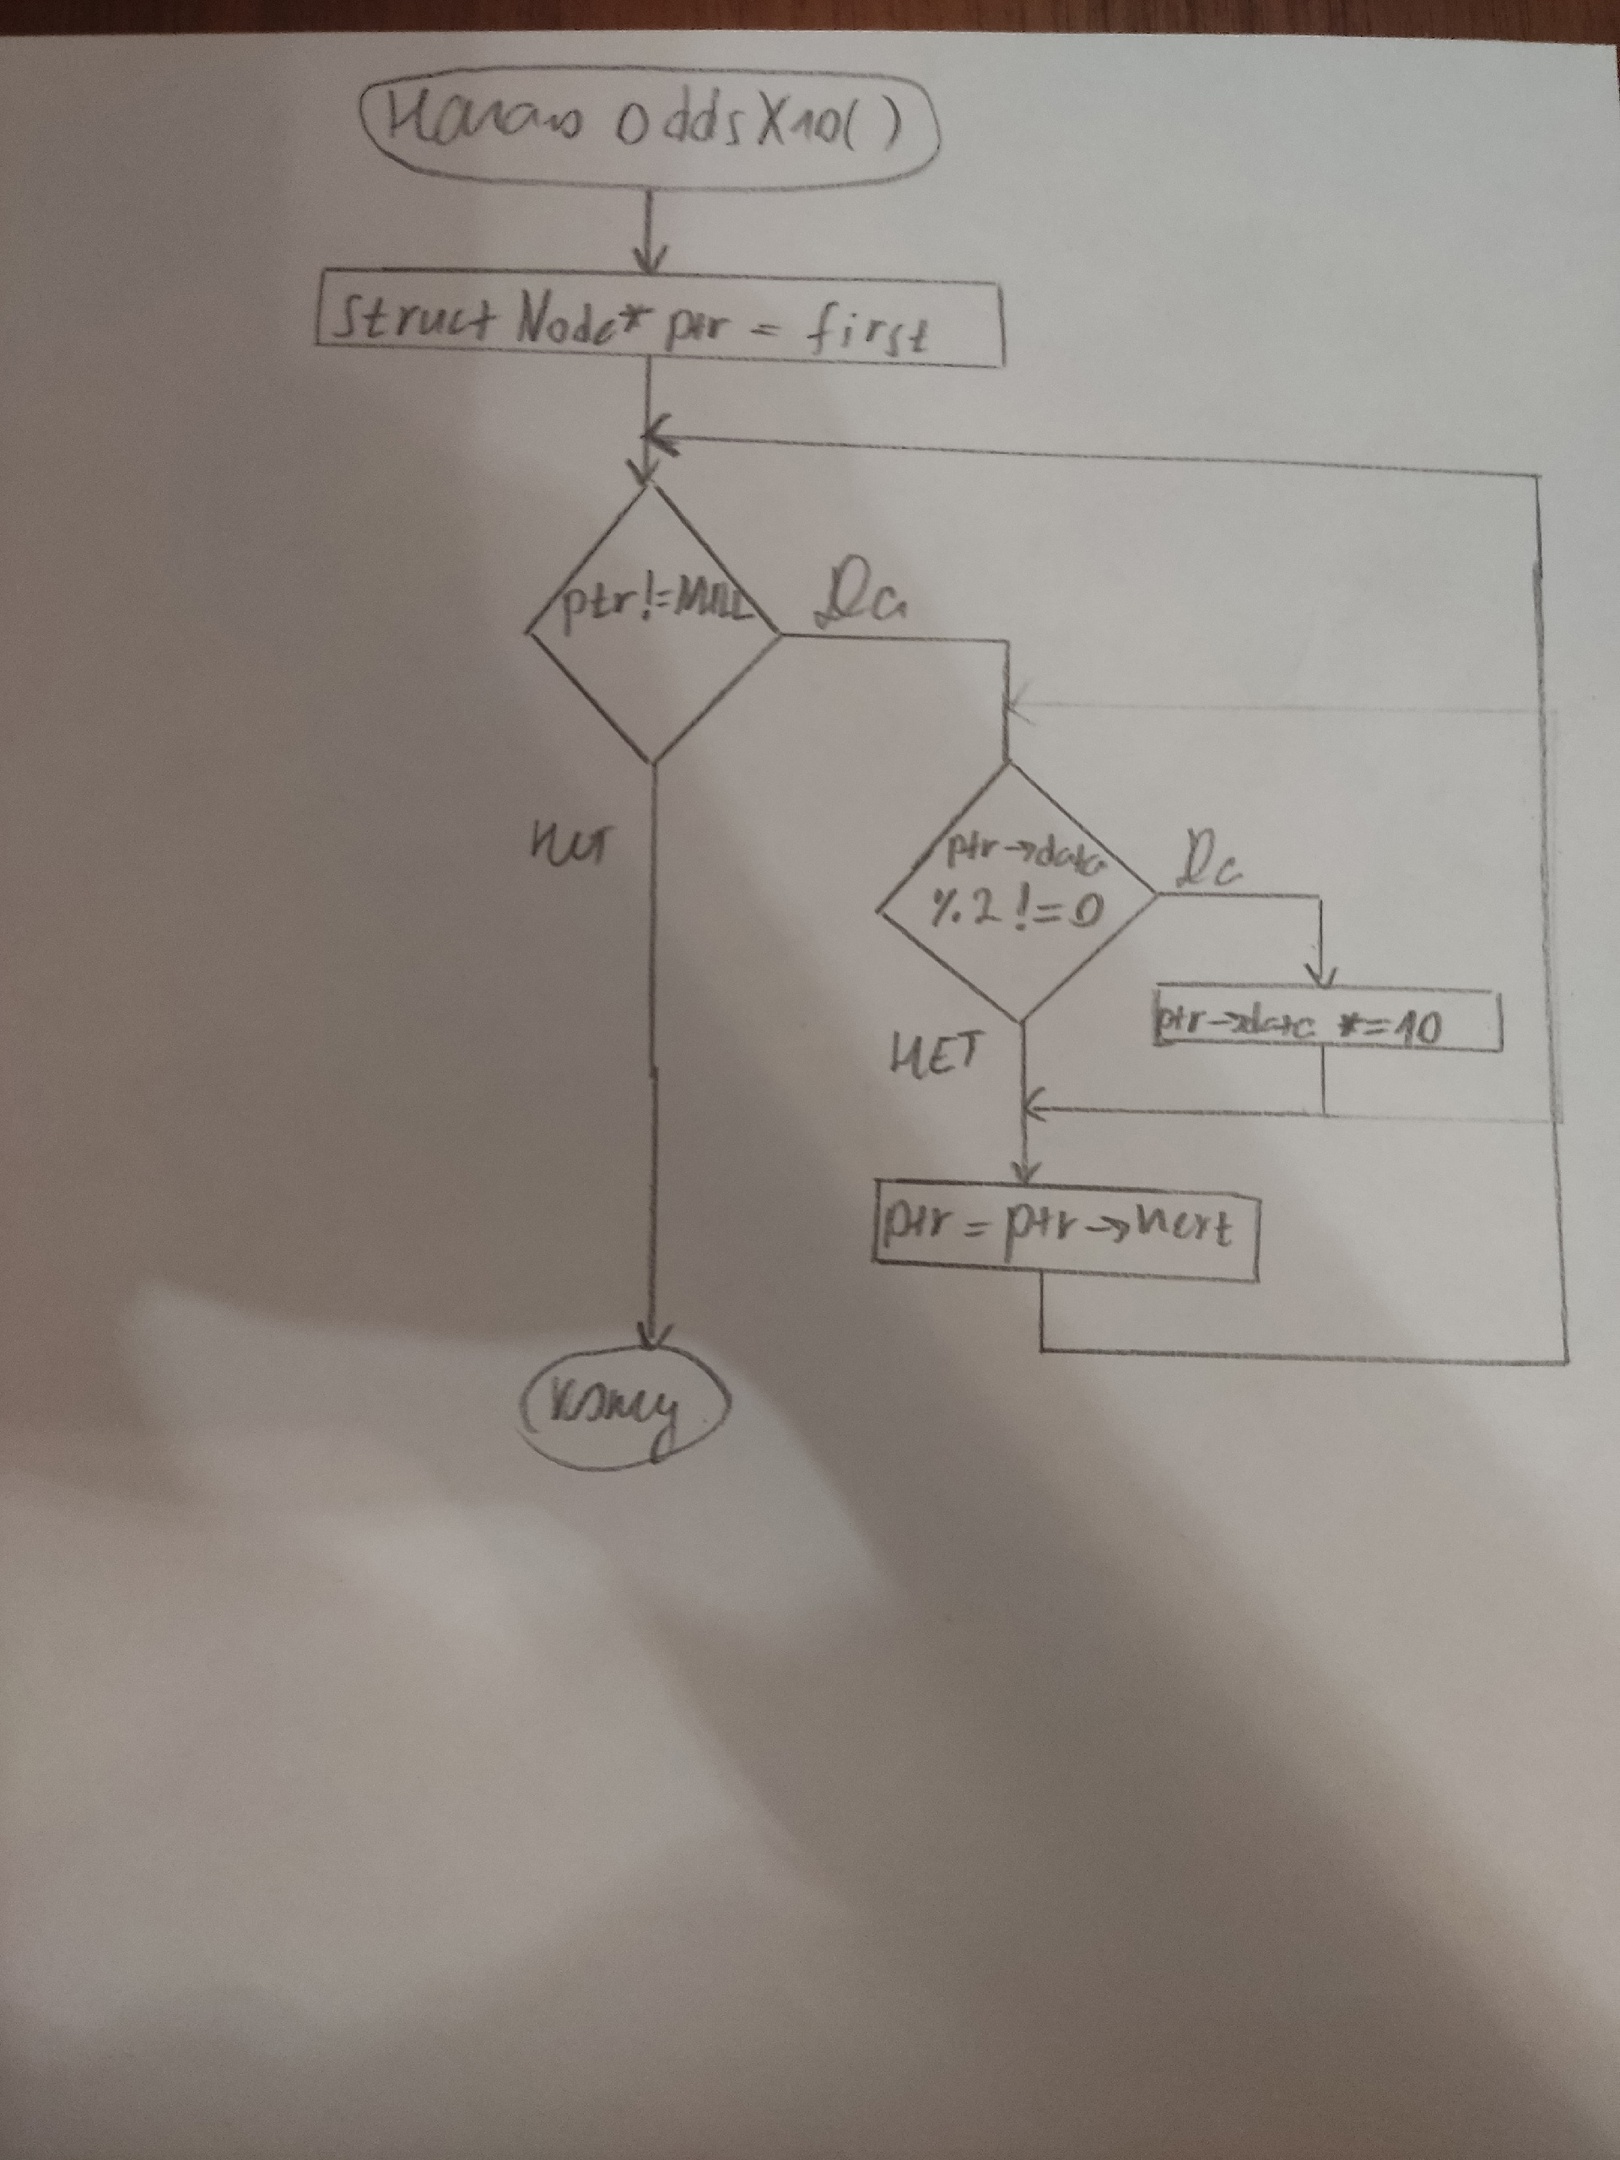 Начало OddsX10()
struct Node* ptr = first
ptr != NULL
Да
Нет
ptr->data
% 2 != 0
Да
ptr->data *= 10
НЕТ
ptr = ptr->next
конец